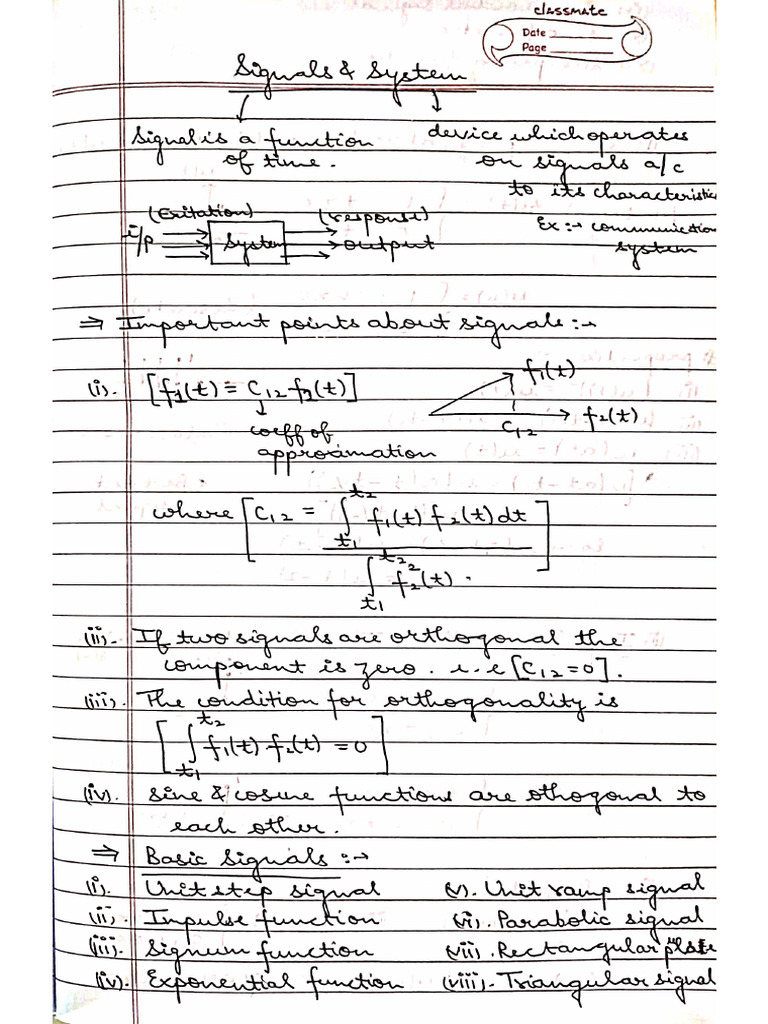 classmate
Date
Page
Signals & System
Signal is a function
of time.
device which operates
on signals a/c
to its characteristics
Ex:→ communication
system
(Exitation)
i/p
System
(response)
output
⇒ Important points about signals:→
(i). [f1(t) = C12 f2(t)]
coeff of
approximation
f1(t)
C12
f2(t)
where [C12 = ∫t1t2 f1(t) f2(t) dt
∫t1t2 f2²(t) . ]
(ii). If two signals are orthogonal the
component is zero. i.e [C12 = 0].
(iii). The condition for orthogonality is
[∫t1t2 f1(t) f2(t) = 0]
(iv). sine & cosine functions are othogonal to
each other.
⇒ Basic Signals:→
(i). Unit step signal (v). Unit ramp signal
(ii). Impulse function (vi). Parabolic signal
(iii). Signum function (vii). Rectangular
(iv). Exponential function (viii). Triangular signal